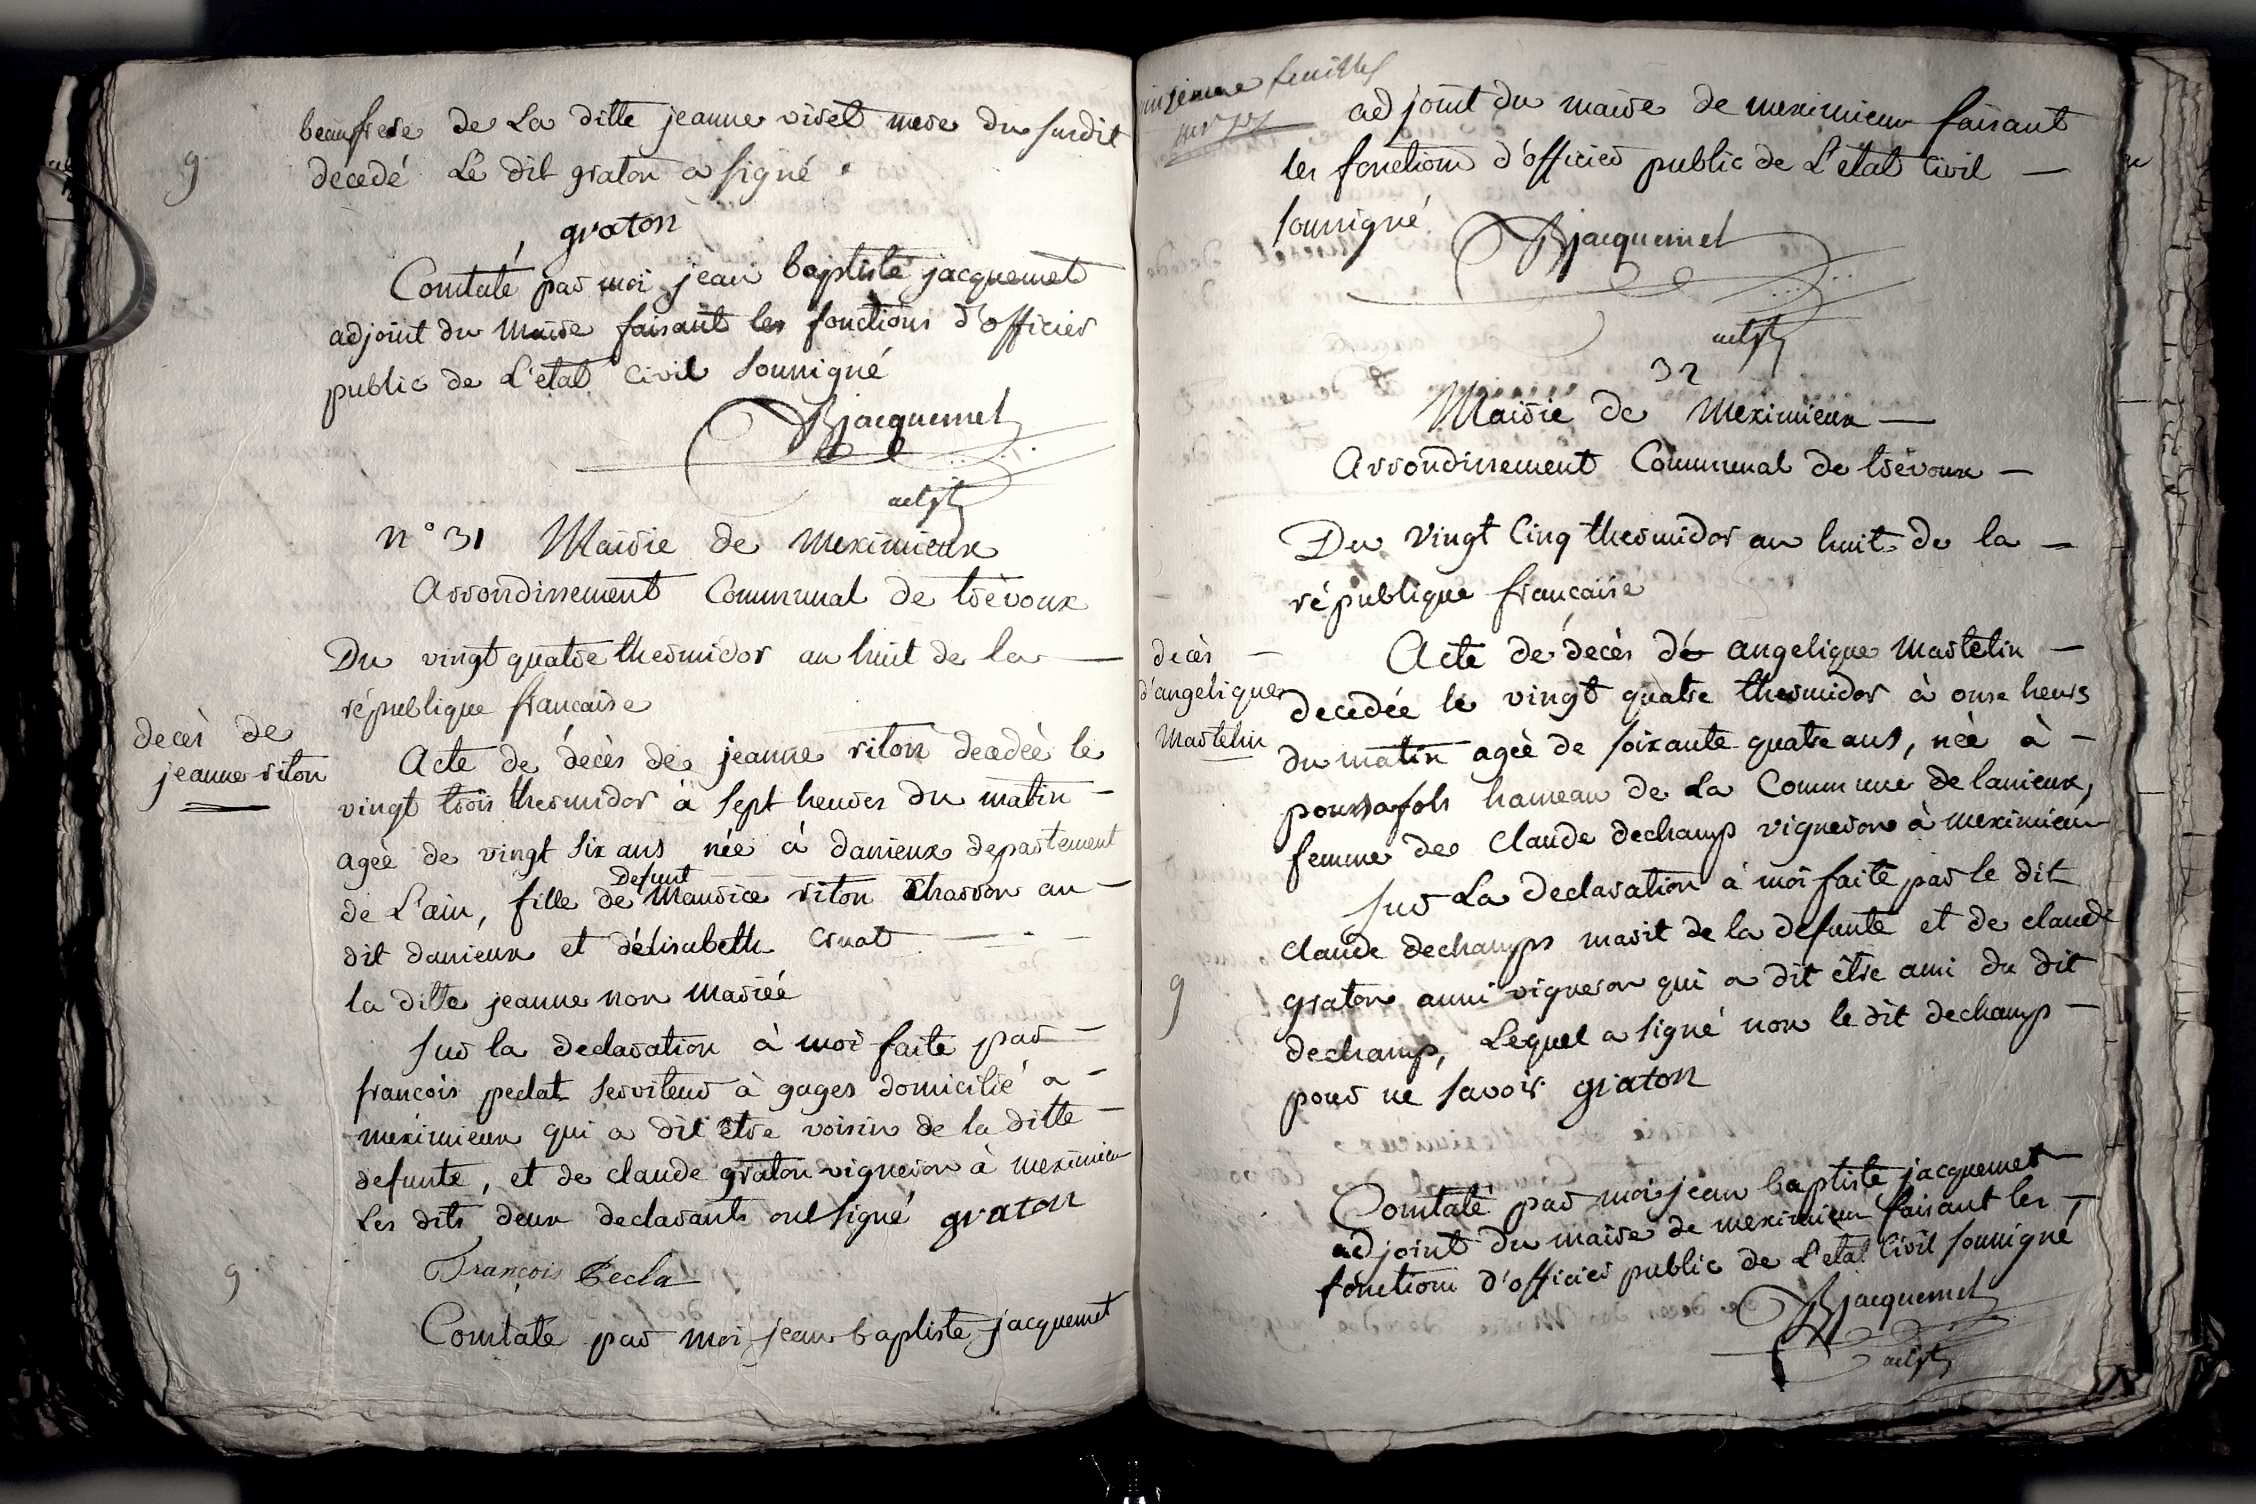 beaufrere de La ditte jeanne viret mere du surdit
decedé Le dit graton a signé
graton
Constaté par moi jean baptiste jacquemet
adjoint du maire faisant les fonctions d'officier
public de L'etat civil soussigné
Bjacquemet
adjt
n° 31 Mairie de meximieux
Arrondissement Communal de trévoux
Du vingt quatre thermidor an huit de la
république francaise
decès de
jeanne riton
Acte de décès de jeanne riton decedèe le
vingt trois thermidor à sept heures du matin
agèe de vingt six ans née à danieux departement
de L'ain, fille de Defunt maurice riton charron au
dit danieux et d'élisabeth cruat
la ditte jeanne non mariéé
sur la declaration à moi faite par
francois peclat serviteur à gages domicilié a
meximieux qui a dit etre voisin de la ditte
defunte, et de claude graton vigneron à meximieu
Les dits deux declarants ont signé graton
François Pecla
Constaté par moi jean baptiste jacquemet
9
9
feuillet
adjoint du maire de meximieux faisant
les fonctions d'officier public de L'état Civil
soussigné
Bjacquemet
adjt
32
Mairie de meximieux
Arrondissement Communal de trévoux
Du vingt Cinq thermidor an huit de la
république francaise
decès
d'angelique
Martelin
Acte de decès de angelique martelin
decedée le vingt quatre thermidor à onse heurs
du matin agèe de soixante quatre ans, née à
poussafols hameau de La Commune de lanieux,
femme de Claude dechamp vigneron à meximieu
sur La declaration à moi faite par le dit
Claude dechamps marit de la defunte et de claude
graton aussi vigneron qui a dit être ami du dit
dechamp, Lequel a signé non le dit dechamp
pour ne savoir graton
9
Constaté par moi jean baptiste jacquemet
adjoint du maire de meximieu faisant les
fonctions d'officier public de L'etat Civil soussigné
Bjacquemet
adjt